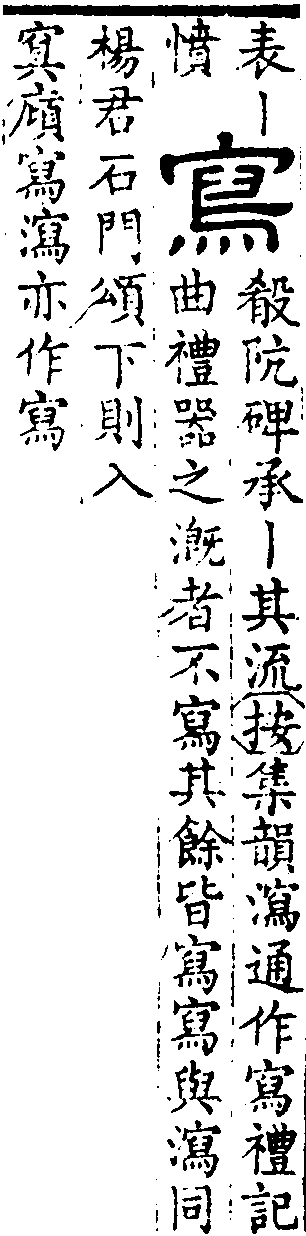 表丨
憤
寫
殽阬碑承丨其流按集韻瀉通作寫禮記
曲禮器之溉者不寫其餘皆寫寫與瀉同
楊君石門頌下則入
㝠廎寫瀉亦作寫